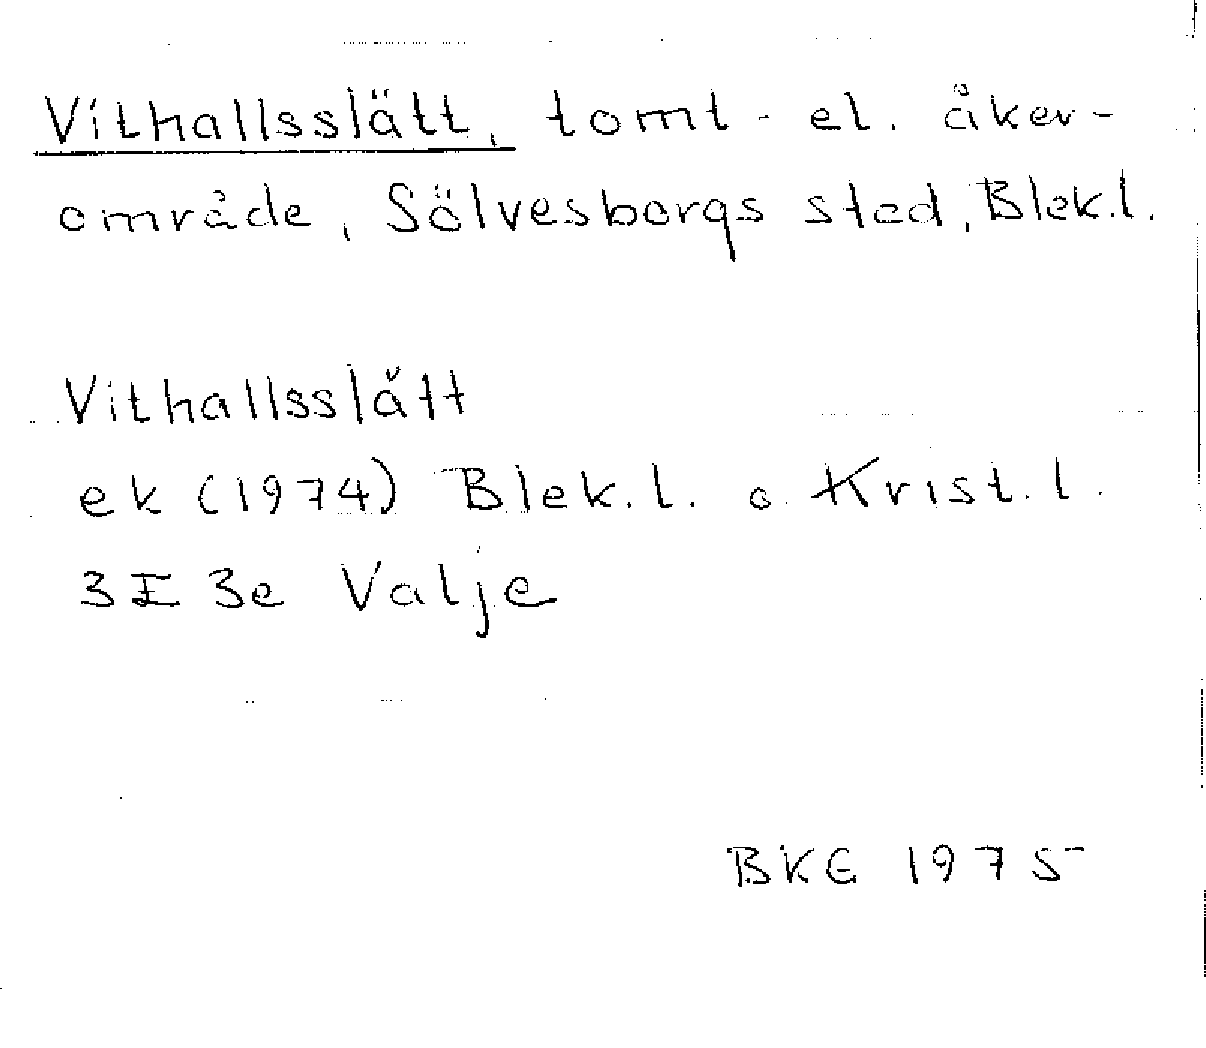 Vithallsslätt, tomt- el. åker-
område, Sölvesborgs stad, Blek.l.
Vithallsslätt
ek (1974) Blek.l. o. Krist.l.
3E 3e Valje
BKE 1975